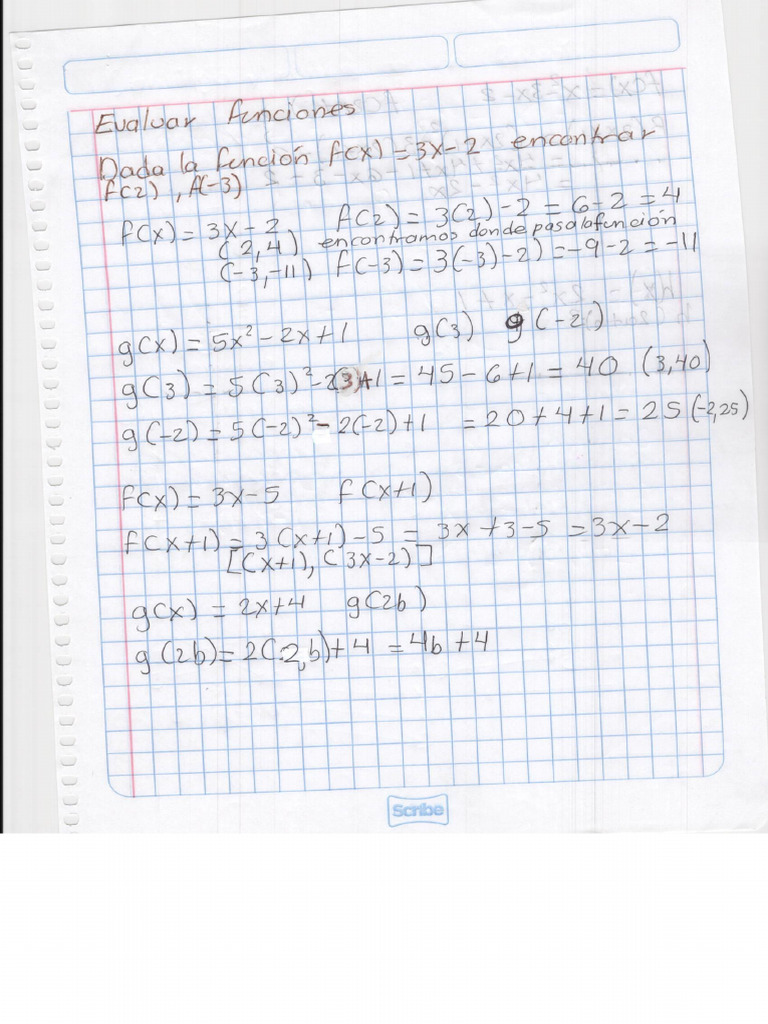 Evaluar funciones
Dada la función f(x) = 3x - 2 encontrar
f(2), f(-3)
f(x) = 3x - 2 f(2) = 3(2) - 2 = 6 - 2 = 4
(2, 4) encontramos donde pasa la función
(-3, -11) f(-3) = 3(-3) - 2) = -9 - 2 = -11
g(x) = 5x² - 2x + 1 g(3) g(-2)
g(3) = 5(3)² - 2(3)+1 = 45 - 6 + 1 = 40 (3,40)
g(-2) = 5(-2)² - 2(-2) + 1 = 20 + 4 + 1 = 25 (-2,25)
f(x) = 3x - 5 f(x+1)
f(x+1) = 3(x+1) - 5 = 3x + 3 - 5 = 3x - 2
[(x+1), (3x-2)]
g(x) = 2x + 4 g(2b)
g(2b) = 2(2b) + 4 = 4b + 4
Scribe